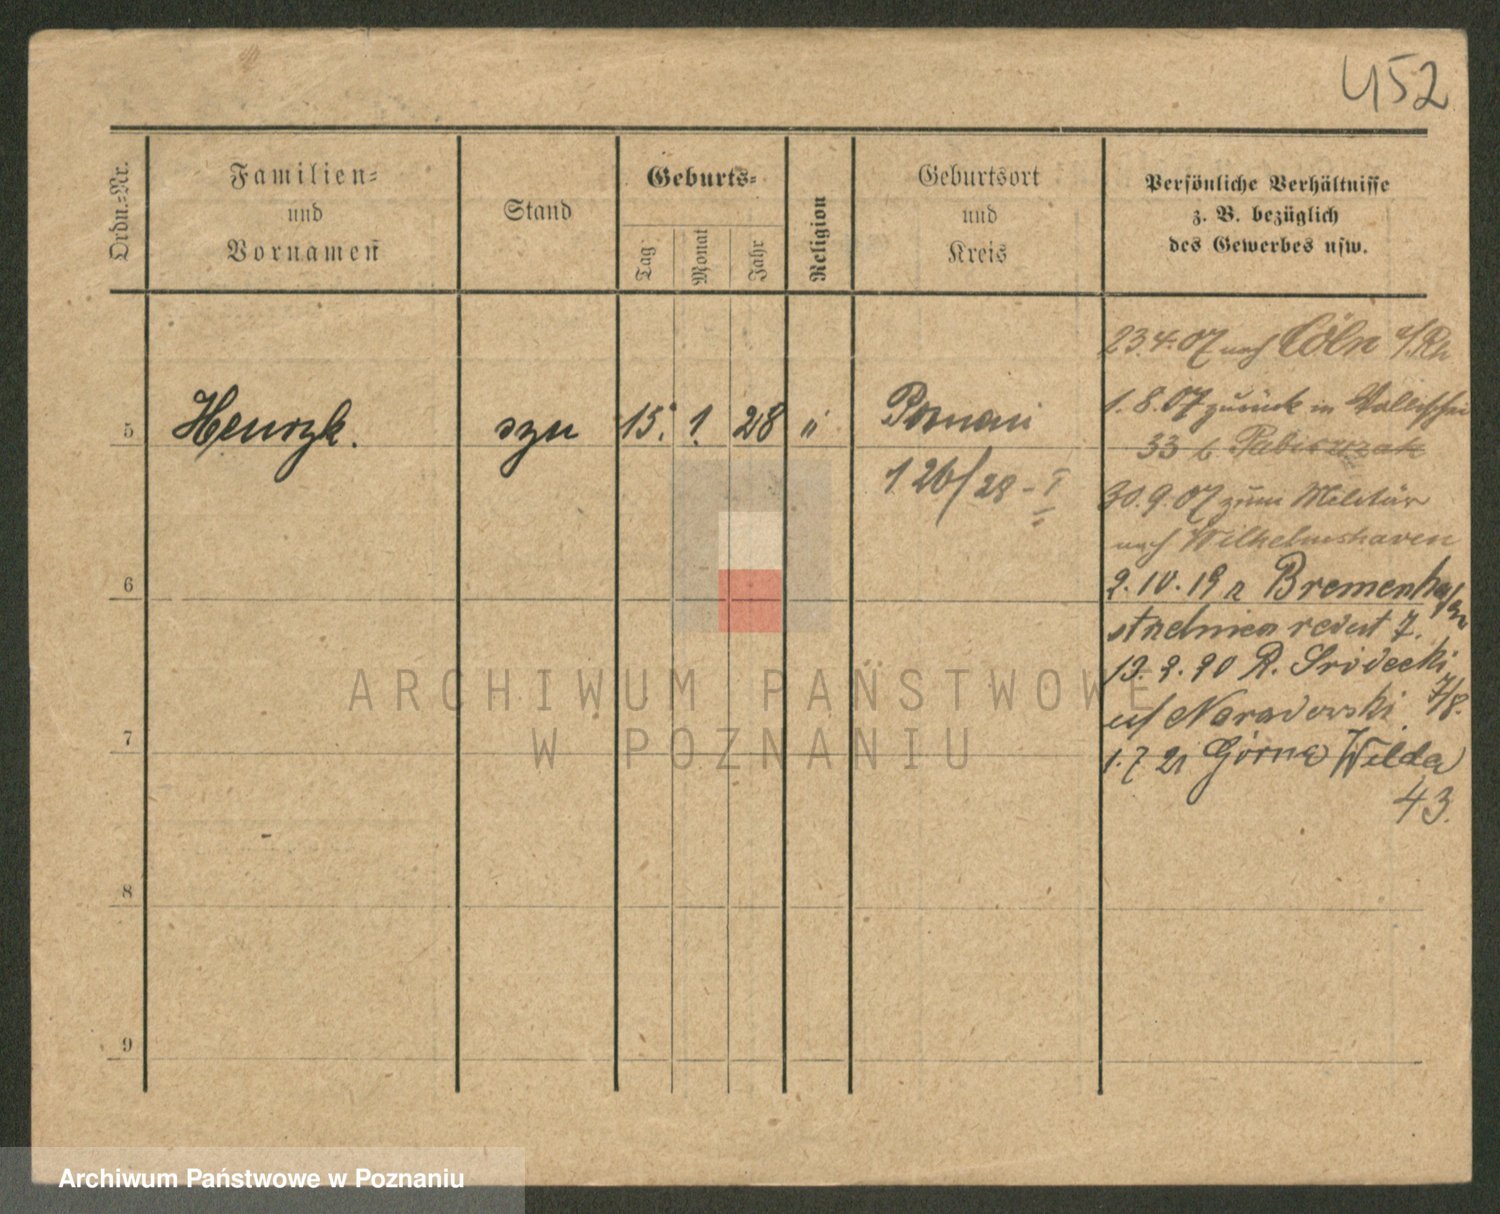 452
Ordn.-Nr.
Familien-
und
Vornamen
Stand
Geburts-
Tag
Monat
Jahr
Religion
Geburtsort
und
Kreis
Persönliche Verhältnisse
z. B. bezüglich
des Gewerbes usw.
23.4.07 nach Cöln a/Rh
1.8.07 zurück in Wallischei
33 b Pabiszczak
30.9.07 zum Militär
nach Wilhelmshaven
2.10.19 z Bremenha
redut 7.
13.2.20 R. Srodecki 7/8.
u/ Naradowski
1.7 21 Górna Wilda
43.
5 Henryk. syn 15. 1. 28 " Poznań
126/28 - I
6
7
8
9
ARCHIWUM PAŃSTWOWE
W POZNANIU
Archiwum Państwowe w Poznaniu